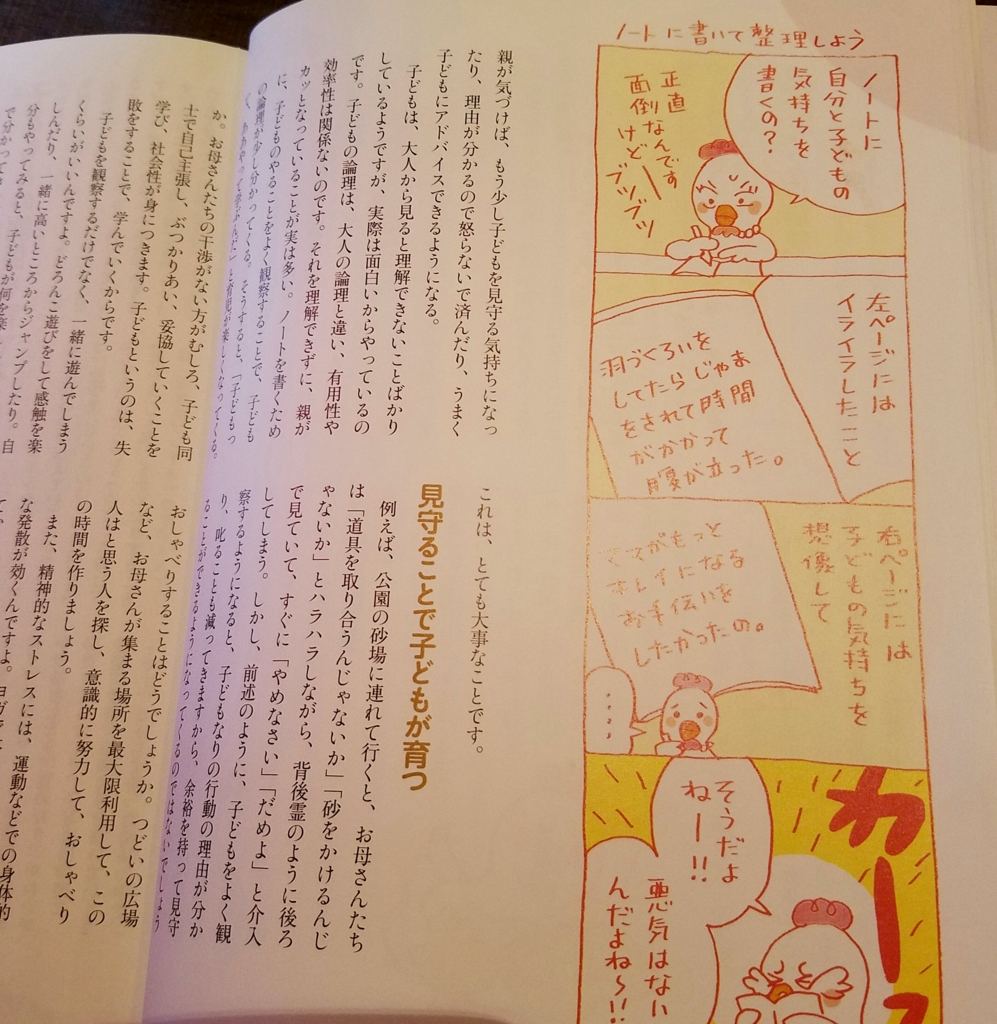 ノートに書いて整理しよう
ノートに
自分と子どもの
気持ちを
書くの?
正直
面倒なんですー
けどブツブツ
左ページには
イライラしたこと
羽づくろいを
してたらじゃま
をされて時間
がかかって
腹が立った。
右ページには
子どもの気持ちを
想像して
ママがもっと
キレイになる
お手伝いを
したかったの。
・・・・
わー
そうだよ
ねー!!
悪気はない
んだよね〜!!
親が気づけば、もう少し子どもを見守る気持ちになっ
たり、理由が分かるので怒らないで済んだり、うまく
子どもにアドバイスできるようになる。
子どもは、大人から見ると理解できないことばかり
しているようですが、実際は面白いからやっているの
です。子どもの論理は、大人の論理と違い、有用性や
効率性は関係ないのです。それを理解できずに、親が
カッとなっていることが実は多い。ノートを書くため
に、子どものやることをよく観察することで、子ども
の論理が少し分かってくる。そうすると、「子どもっ
これは、とても大事なことです。
見守ることで子どもが育つ
例えば、公園の砂場に連れて行くと、お母さんたち
は「道具を取り合うんじゃないか」「砂をかけるんじ
ゃないか」とハラハラしながら、背後霊のように後ろ
で見ていて、すぐに「やめなさい」「だめよ」と介入
してしまう。しかし、前述のように、子どもをよく観
察するようになると、子どもなりの行動の理由が分か
り、叱ることも減ってきますから、余裕を持って見守
ることができるようになってくるのではないでしょう
か。お母さんたちの干渉がない方がむしろ、子ども同
士で自己主張し、ぶつかりあい、妥協していくことを
学び、社会性が身につきます。子どもというのは、失
敗をすることで、学んでいくからです。
子どもを観察するだけでなく、一緒に遊んでしまう
くらいがいいんですよ。どろんこ遊びをして感触を楽
しんだり、一緒に高いところからジャンプしたり。自
分もやってみると、子どもが何を楽
おしゃべりすることはどうでしょうか。つどいの広場
など、お母さんが集まる場所を最大限利用して、この
人はと思う人を探し、意識的に努力して、おしゃべり
の時間を作りましょう。
また、精神的なストレスには、運動などでの身体的
な発散が効くんですよ。